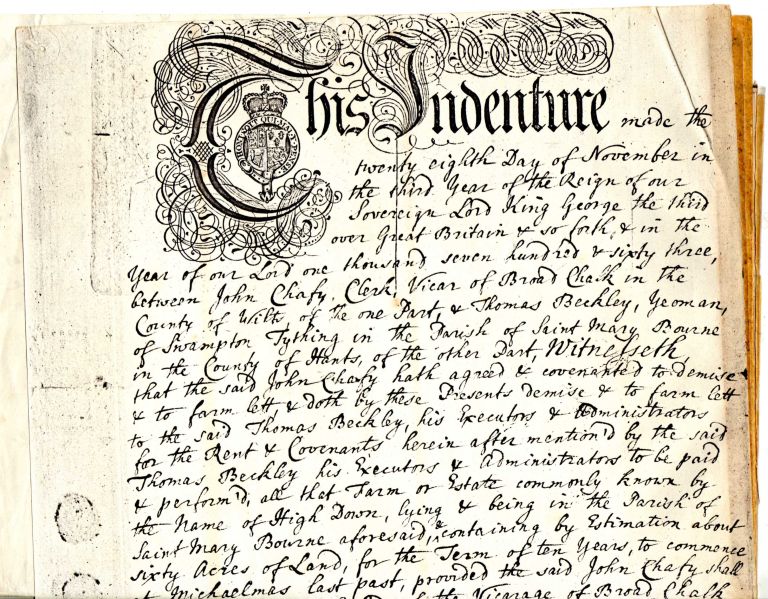 This Indenture made the
twenty eighth Day of November in
the third Year of the Reign of our
Sovereign Lord King George the third
over Great Britain & so forth & in the
Year of our Lord one thousand seven hundred & sixty three,
between John Chafy, Clerk, Vicar of Broad Chalk in the
County of Wilts, of the one Part, & Thomas Beckley, Yeoman,
of Swampton Tything in the Parish of Saint Mary Bourne
in the County of Hants, of the other Part, Witnesseth,
that the said John Chafy hath agreed & covenanted to demise
& to farm lett, & doth by these Presents demise & to farm lett
to the said Thomas Beckley, his Executors & Administrators
for the Rent & Covenants herein after mention'd by the said
Thomas Beckley his Executors & Administrators to be paid
& perform'd, all that Farm or Estate commonly known by
the Name of High Down, lying & being in the Parish of
Saint Mary Bourne aforesaid, & containing by Estimation about
sixty Acres of Land, for the Term of ten Years, to commence
at Michaelmas last past, provided the said John Chafy shall
the Vicarage of Broad Chalk